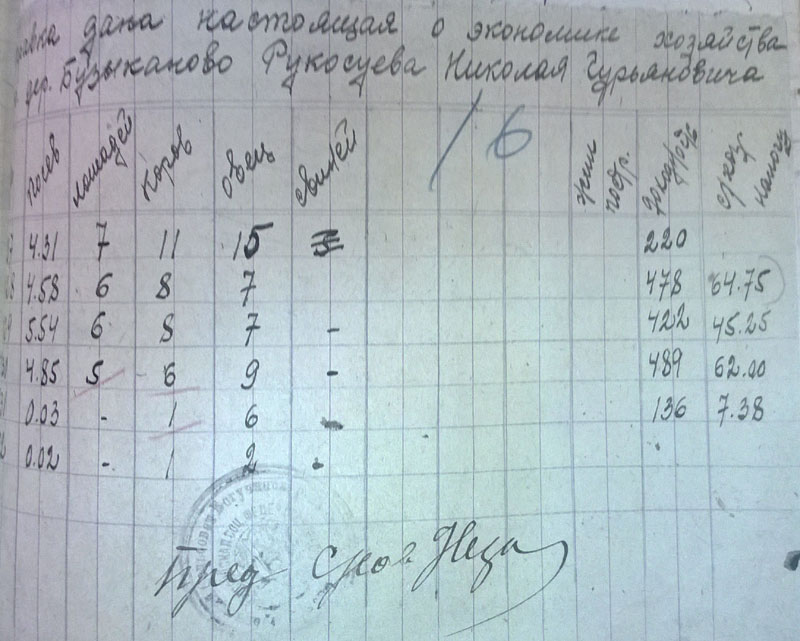 дана настоящая о экономике хозяйства
дер. Бузыканово Рукосуева Николая Гурьяновича
посев лошадей коров овец свиней 16
4.31 7 11 15 220
4.58 6 8 7 478 64.75
5.54 6 8 7 - 422 45.25
4.85 5 6 9 - 489 62.00
0.03 - 1 6 - 136 7.38
0.02 - 1 2 -
Пред.